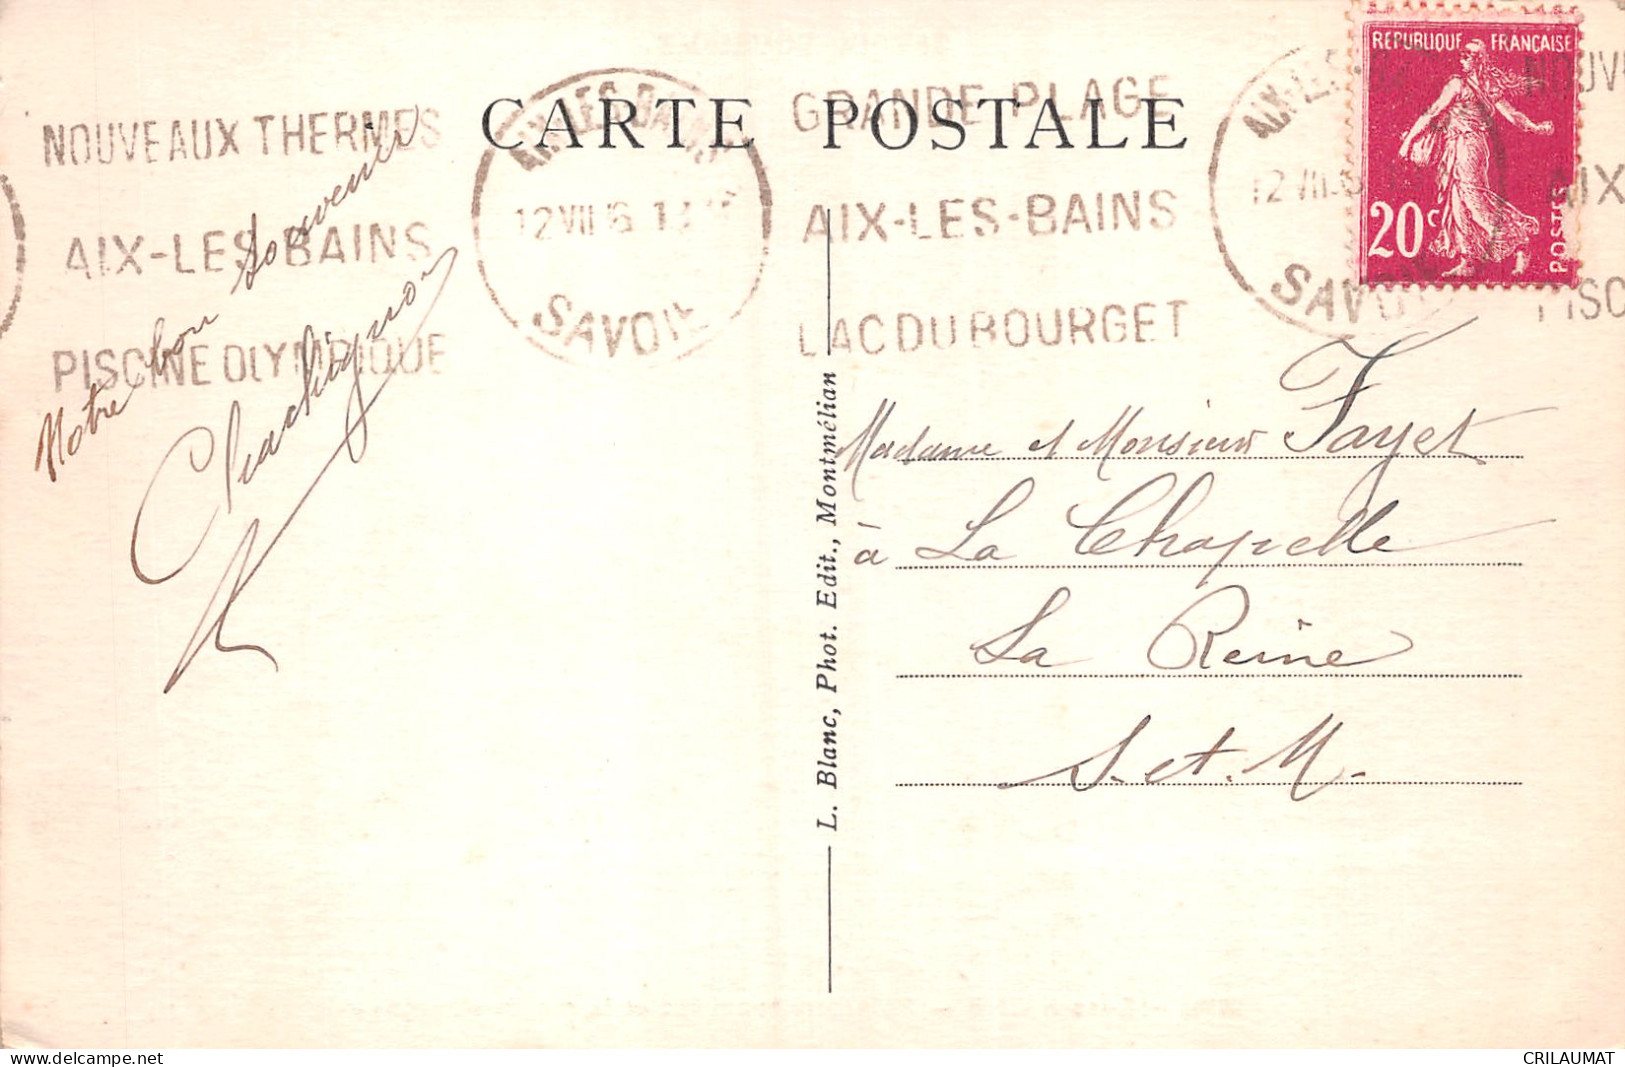 CARTE POSTALE
NOUVEAUX THERMES
AIX-LES-BAINS
PISCINE OLYMPIQUE
AIX-LES-BAINS
12 VII
SAVOIE
GRANDE PLAGE
AIX-LES-BAINS
LAC DU BOURGET
AIX-LES-BAINS
12 VII
SAVOIE
RÉPUBLIQUE FRANÇAISE
20c
POSTES
NOUV
AIX
PISC
Notre bon souvenir
L. Blanc, Phot. Edit., Montmélian
Madame et Monsieur Fayet
à La Chapelle
La Reine
S. et. M.
delcampe.net
CRILAUMAT